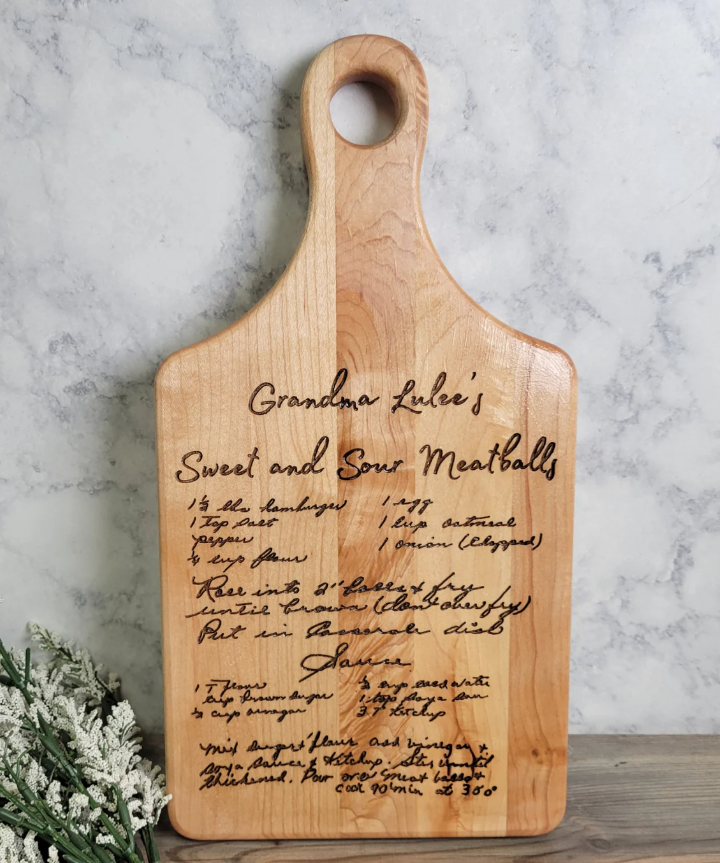 Grandma Lulee's
Sweet and Sour Meatballs
1 ½ lbs hamburger 1 egg
1 Tsp salt 1 cup oatmeal
pepper 1 onion (Chopped)
¼ cup flour
Rose into 2" balls & fry
until brown (don't over fry)
Put in Casserole dish
Sauce
1 T flour ½ cup cold water
cup brown sugar 1 tsp soya sau
cup vinegar 3 T Ketchup
Mix sugar & flour add vinegar &
soya sauce & Ketchup. Stir until
thickened. Pour over meat balls &
cook 90 min at